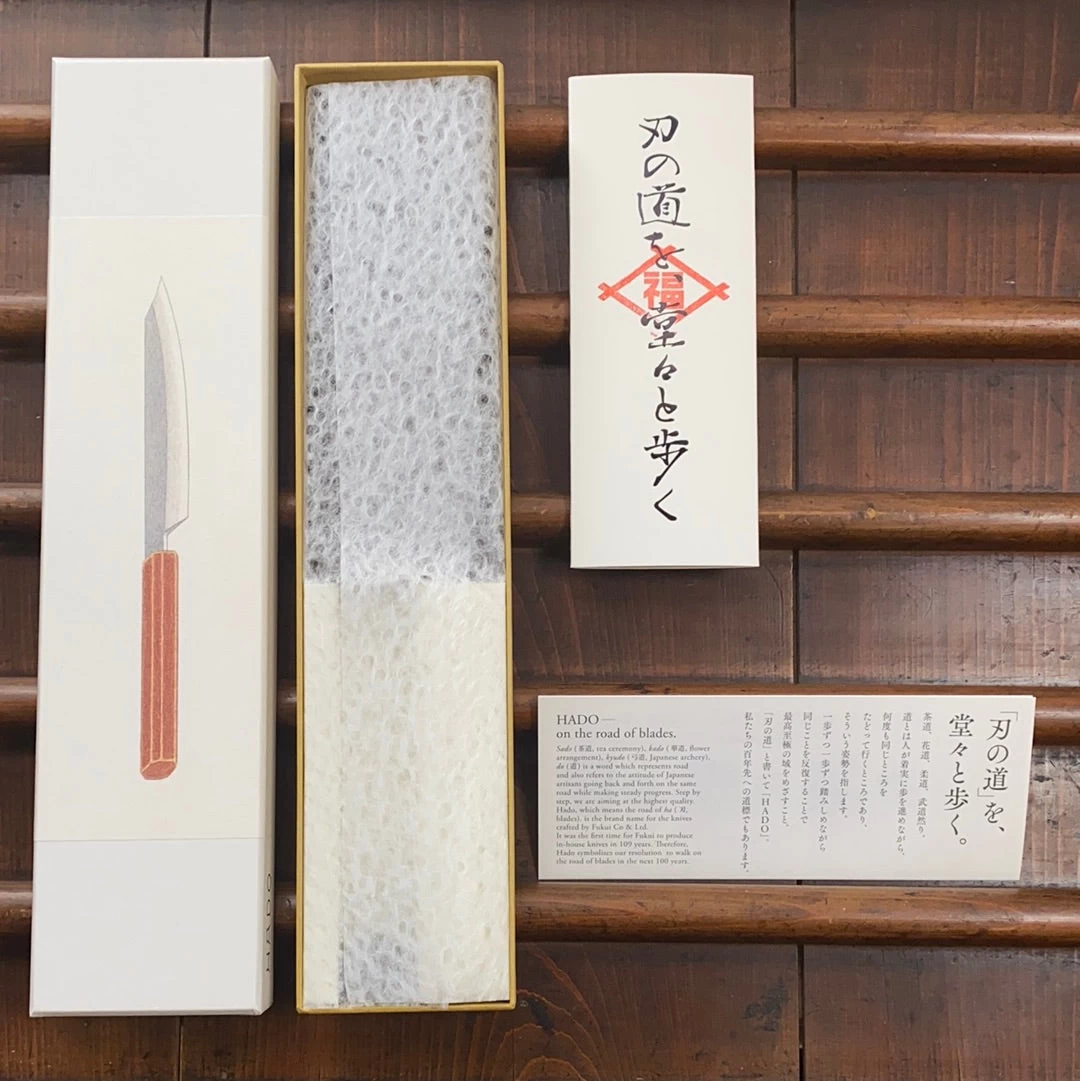 刃の道を、堂々と歩く
福
HADO—
on the road of blades.
Sado (茶道, tea ceremony), kado (華道, flower
arrangement), kyudo (弓道, Japanese archery),
do (道) is a word which represents road
and also refers to the attitude of Japanese
artisans going back and forth on the same
road while making steady progress. Step by
step, we are aiming at the highest quality.
Hado, which means the road of ha (刃,
blades), is the brand name for the knives
crafted by Fukui Co & Ltd.
It was the first time for Fukui to produce
in-house knives in 109 years. Therefore,
Hado symbolizes our resolution to walk on
the road of blades in the next 100 years.
「刃の道」を、
堂々と歩く。
茶道、花道、柔道、武道然り。
道とは人が着実に歩を進めながら、
何度も同じところを
たどって行くところであり、
そういう姿勢を指します。
一歩ずつ一歩ずつ踏みしめながら
同じことを反復することで
最高至極の域をめざすこと。
「刃の道」と書いて「HADO」。
私たちの百年先への道標でもあります。
HADO